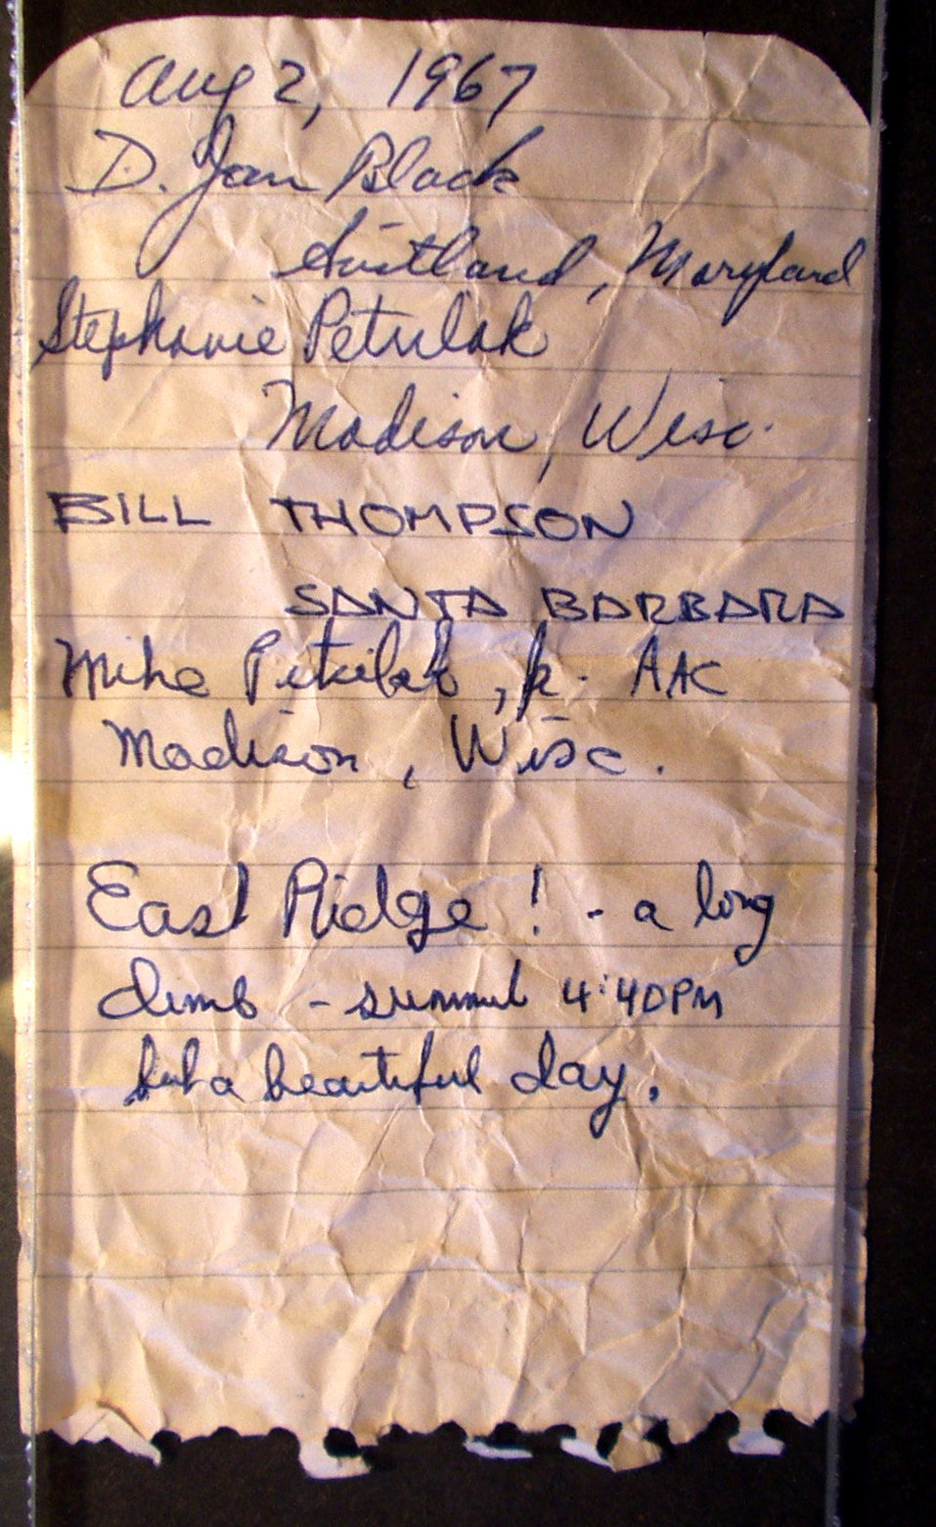 Aug 2, 1967
D. Jan Black
Suitland, Maryland
Stephanie Petrilak
Madison, Wisc.
BILL THOMPSON
SANTA BARBARA
Mike Petrilak, Jr. AAC
Madison, Wisc.
East Ridge! - a long
climb - summit 4:40PM
but a beautiful day.